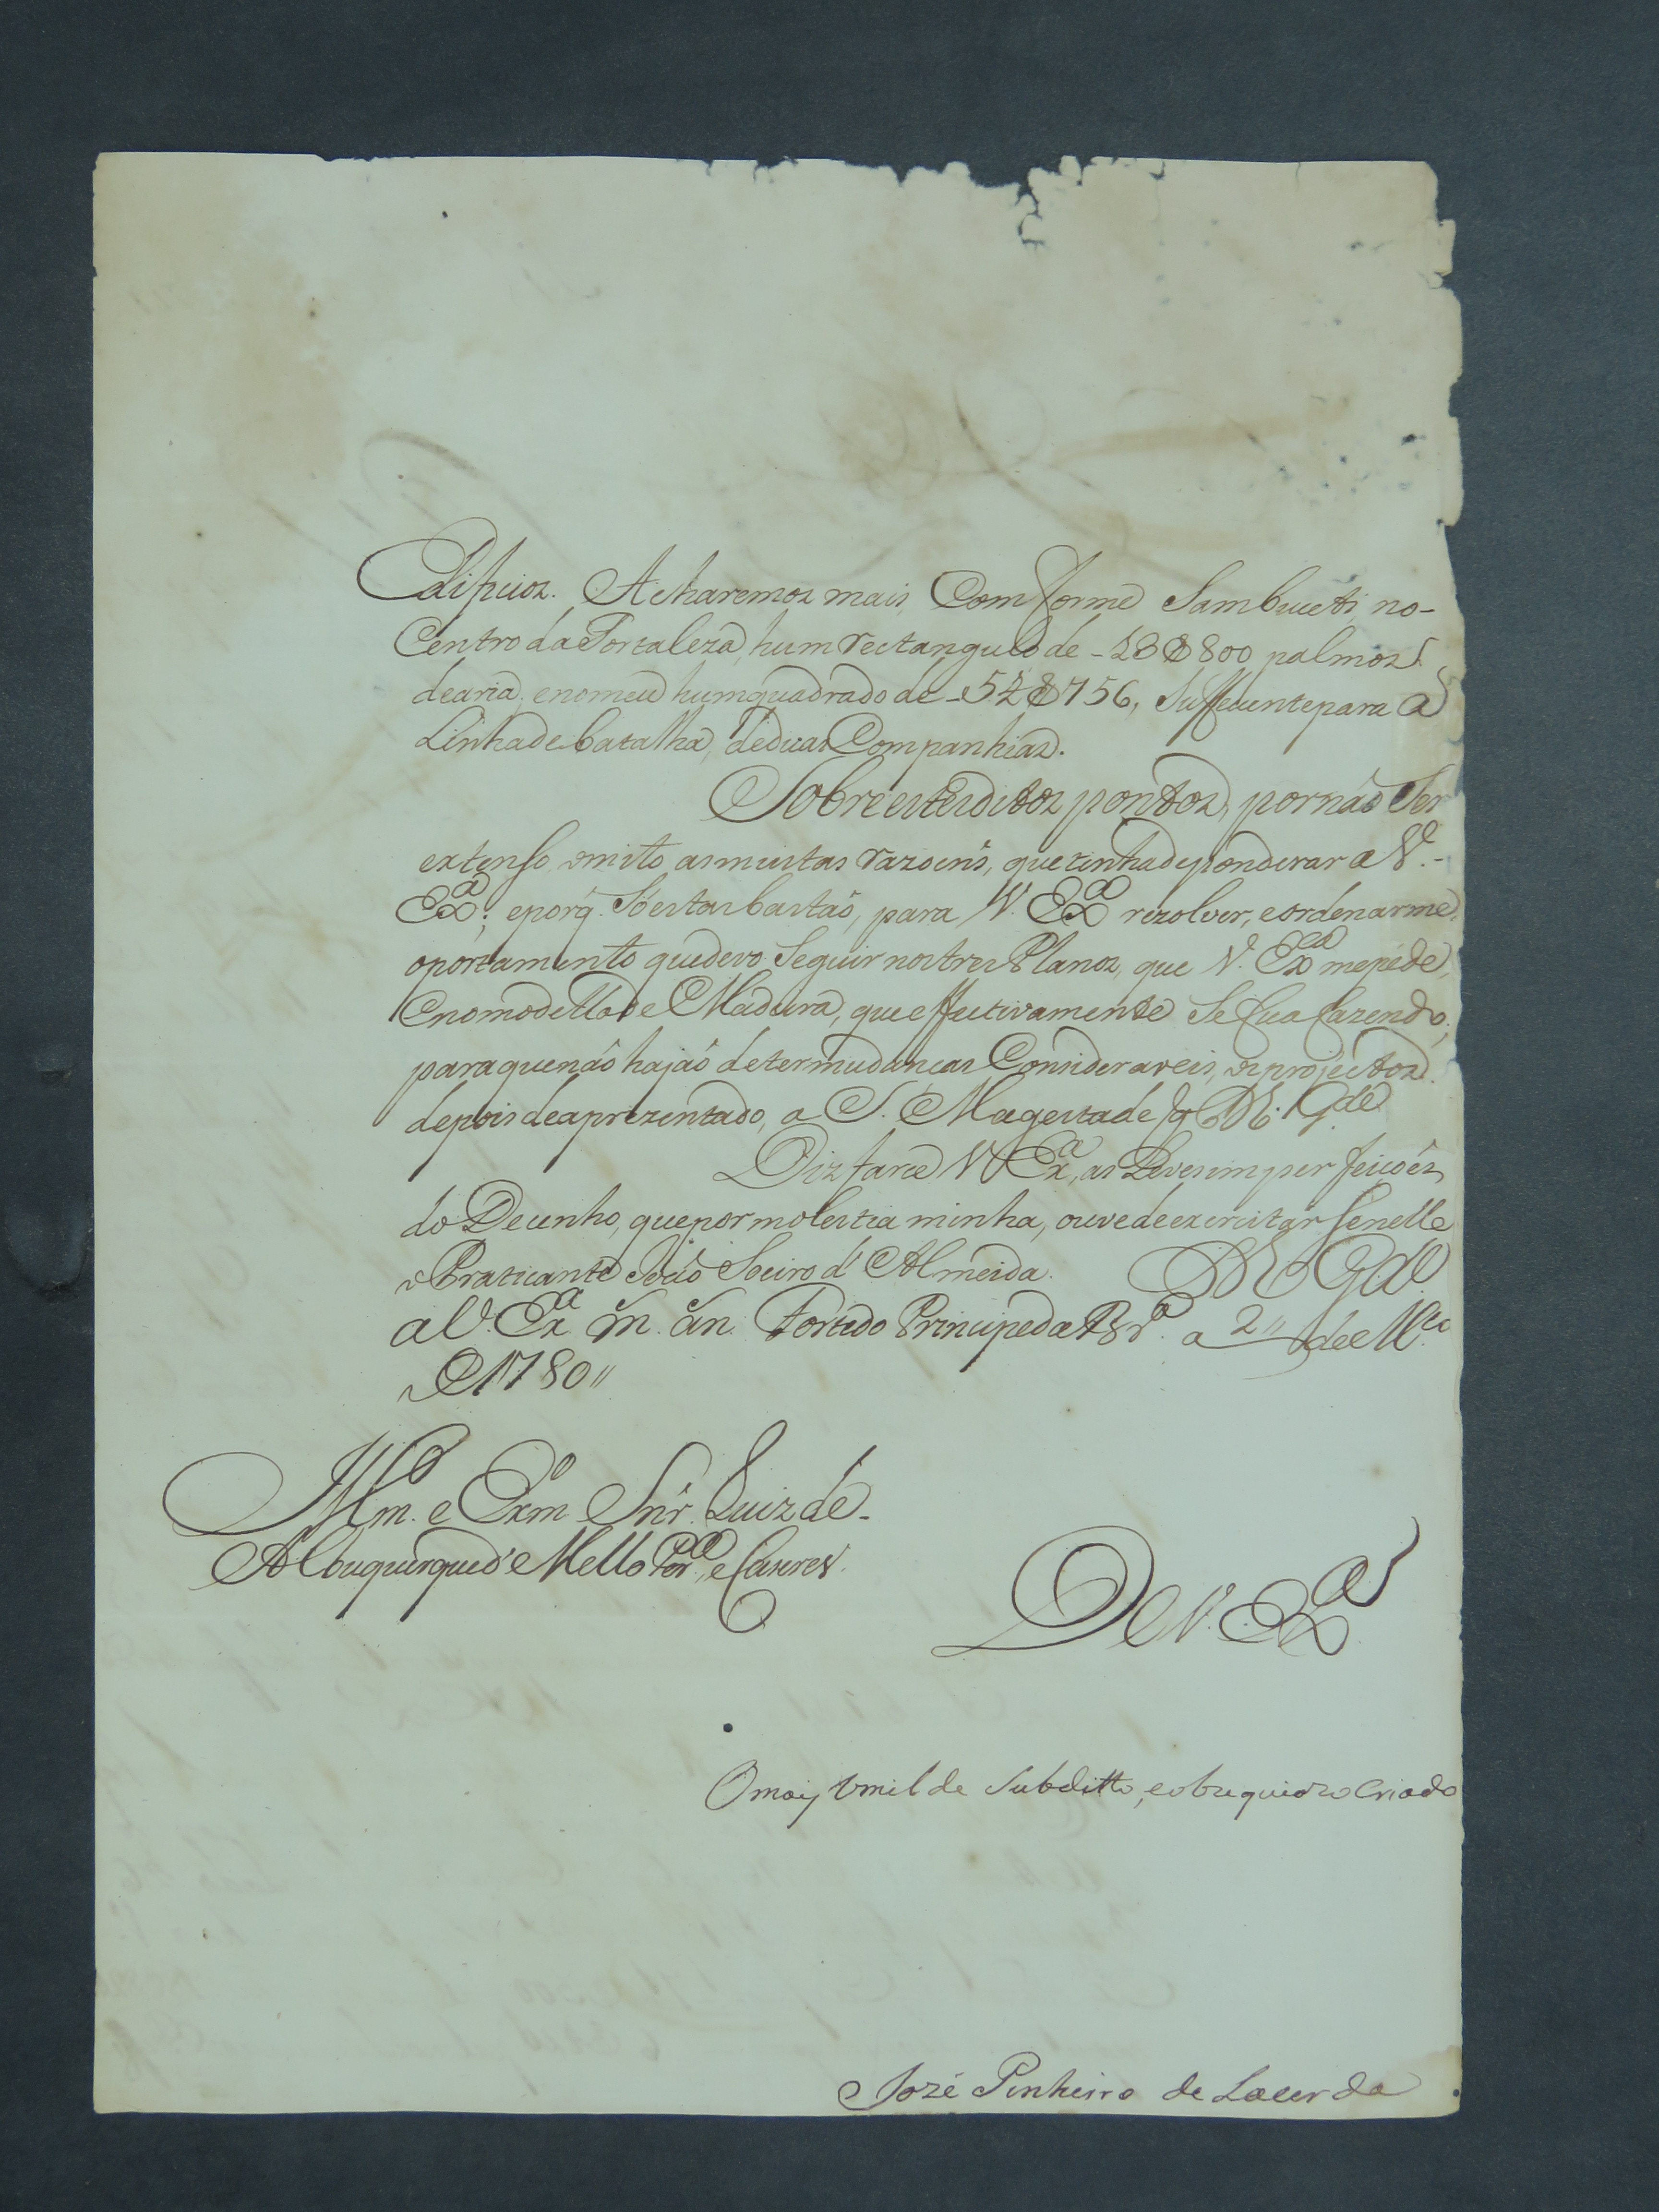 Edificioz. Acharemoz mais, Comforme Sambuceti, no-
Centro da Fortaleza, hum rectangulo de - 28$800 palmoz
de aria, e no meu hum quadrado de - 52$756, Sufficiente para a
Linha de batalha, de duas Companhiaz.
Sobre estes dittoz pontoz, por não Ser
extenso, omito as muitas razoens, que tinha de ponderar a V.-
Exa; e porq. Só estas bastão, para V. Exa rezolver, e ordenarme,
oportamento que devo Seguir nos tres Planoz, que V. Exa me pede,
e no modello de Madura, que effectivamente Se fica fazendo,
para que não hajão de ter mudancas Consideraveis, os projectoz
depois de aprezentado, a S. Magestade q D.s G.de
Disfarce V Exa, as Leves imperfeicoes
do Decunho, que por molestia minha, ouve de exercitar se nelle
o Praticante João Soeiro d' Almeida. D.s G.de
a V. Exa m. an. Forte do Principe da Bra. a 2,, de M.co
de 1780,,
Illm.o e Exm.o Snr. Luiz de-
Albuquerque d' Mello Per.a, e Caceres.
De V. Exa
O mais Vmilde Subditto, e obuquiozo Criado
Jozé Pinheiro de Lacerda